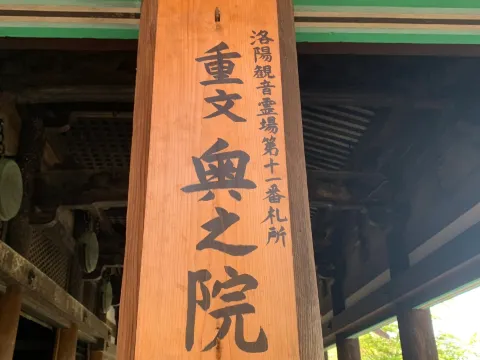 洛陽観音霊場第十一番札所
重文 奥之院